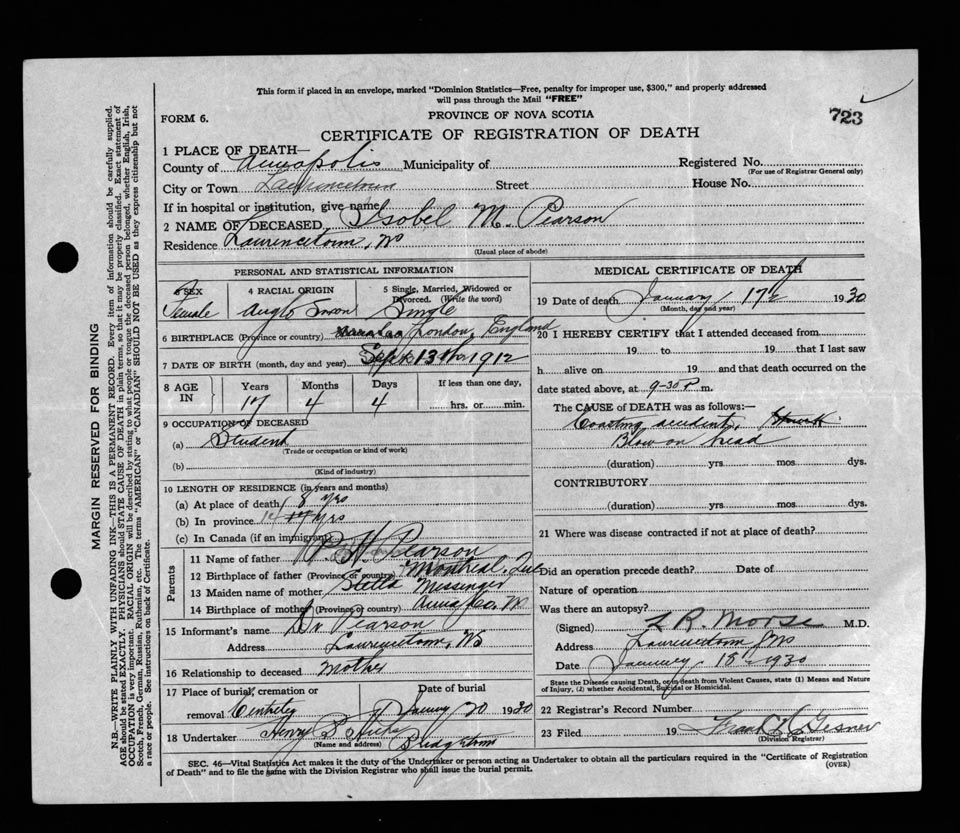 This form if placed in an envelope, marked "Dominion Statistics—Free, penalty for improper use, $300," and properly addressed
will pass through the Mail "FREE"
FORM 6.
PROVINCE OF NOVA SCOTIA
723
CERTIFICATE OF REGISTRATION OF DEATH
1 PLACE OF DEATH—
County of Annapolis Municipality of Registered No.
(For use of Registrar General only)
City or Town Lawrencetown Street House No.
If in hospital or institution, give name
2 NAME OF DECEASED, Isobel M. Pearson
Residence Lawrencetown, NS
(Usual place of abode)
PERSONAL AND STATISTICAL INFORMATION
3 SEX
Female
4 RACIAL ORIGIN
Anglo Saxon
5 Single, Married, Widowed or
Divorced. (Write the word)
Single
6 BIRTHPLACE (Province or country) London, England
7 DATE OF BIRTH (month, day and year) Sept 13th 1912
8 AGE
IN
Years Months Days If less than one day,
17 4 4 hrs. or min.
9 OCCUPATION OF DECEASED
(a) Student
(Trade or occupation or kind of work)
(b)
(Kind of industry)
10 LENGTH OF RESIDENCE (in years and months)
(a) At place of death 8 yrs
(b) In province yrs
(c) In Canada (if an immigrant)
Parents
11 Name of father Pearson
12 Birthplace of father (Province or country) Montreal, Que
13 Maiden name of mother Stella Messenger
14 Birthplace of mother (Province or country) Anna Co, NS
15 Informant's name Dr Pearson
Address Lawrencetown, NS
16 Relationship to deceased Mother
17 Place of burial, cremation or Date of burial
removal January 20 1930
18 Undertaker Henry Hicks
(Name and address) Bridgetown
MEDICAL CERTIFICATE OF DEATH
19 Date of death January 17 1930
(Month, day and year)
20 I HEREBY CERTIFY that I attended deceased from
19 to 19 that I last saw
h alive on 19 and that death occurred on the
date stated above, at 9-30 P m.
The CAUSE of DEATH was as follows:—
Coasting accident, Struck
Blow on head
(duration) yrs. mos. dys.
CONTRIBUTORY
(duration) yrs. mos. dys.
21 Where was disease contracted if not at place of death?
Did an operation precede death? Date of
Nature of operation
Was there an autopsy?
(Signed) L R. Morse M.D.
Address Lawrencetown NS
Date January 18 1930
State the Disease causing Death, or in death from Violent Causes, state (1) Means and Nature
of Injury, (2) whether Accidental, Suicidal or Homicidal.
22 Registrar's Record Number
23 Filed 19 Frank Gesner
(Division Registrar)
SEC. 46—Vital Statistics Act makes it the duty of the Undertaker or person acting as Undertaker to obtain all the particulars required in the "Certificate of Registration
of Death" and to file the same with the Division Registrar who shall issue the burial permit.
(OVER)
MARGIN RESERVED FOR BINDING
N.B.—WRITE PLAINLY WITH UNFADING INK—THIS IS A PERMANENT RECORD. Every item of information should be carefully supplied.
AGE should be stated EXACTLY. PHYSICIANS should STATE CAUSE OF DEATH in plain terms, so that it may be properly classified. Exact statement of
OCCUPATION is very important. RACIAL ORIGIN will be described by stating to what people or tongue the deceased person belonged, whether English, Irish,
Scotch, French, German, Russian, Ruthenian, etc. The terms "AMERICAN" or "CANADIAN" SHOULD NOT BE USED as they express citizenship but not
a race or people. See instructions on back of Certificate.